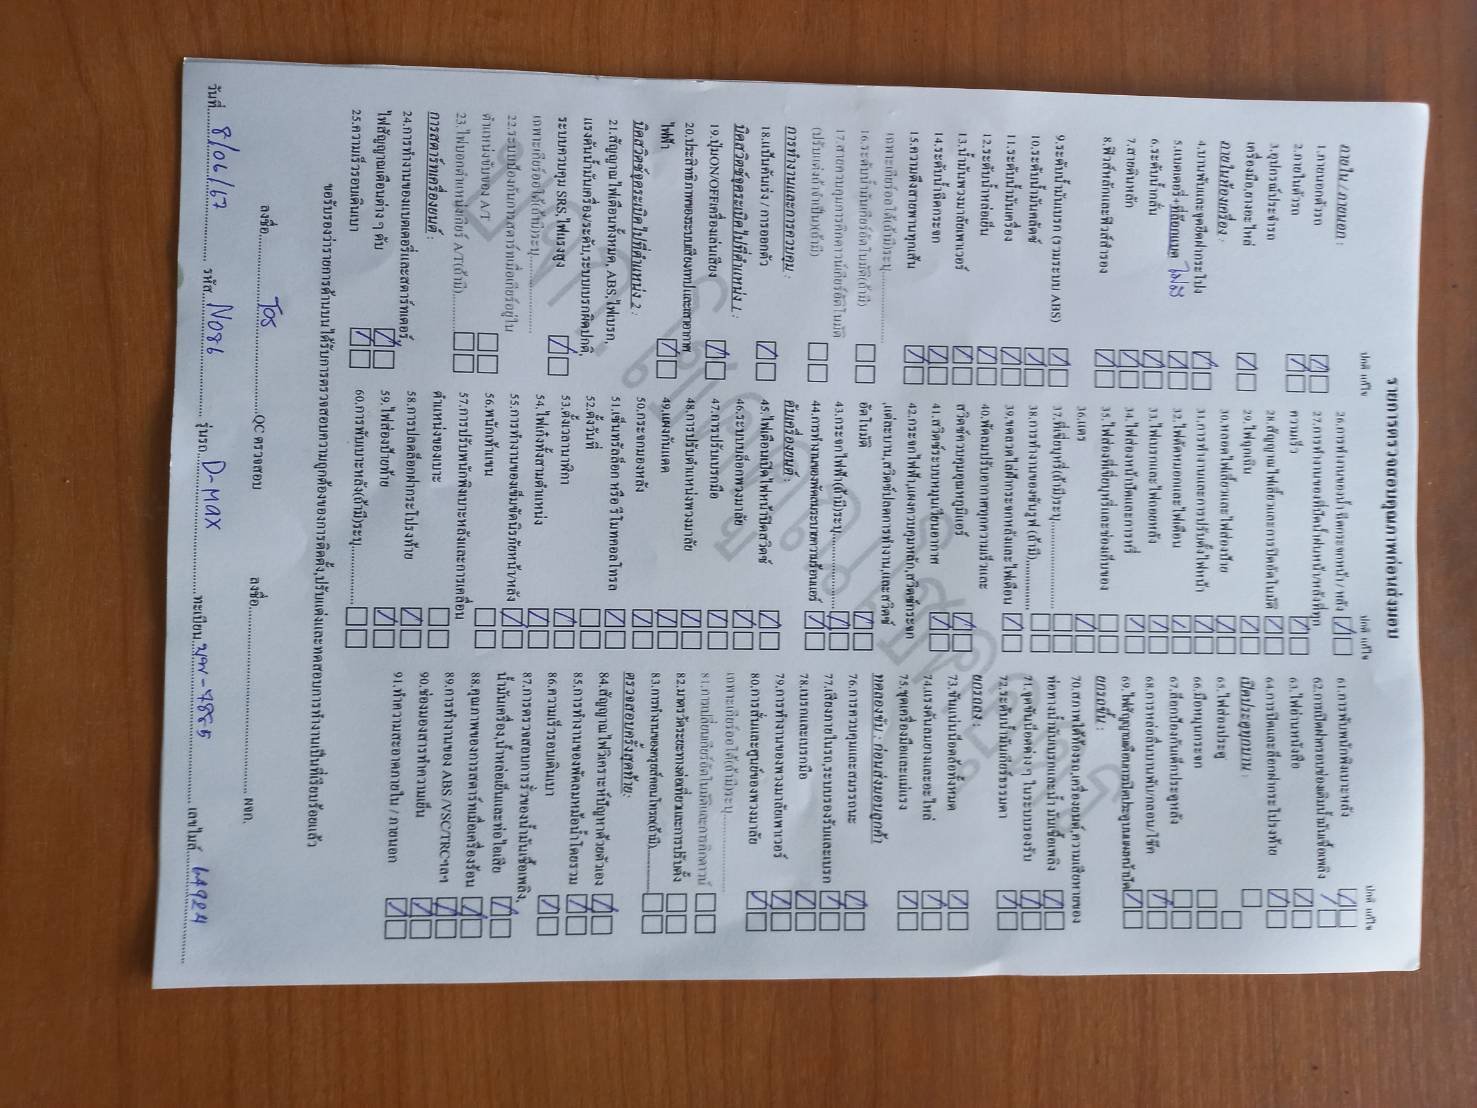 รายการตรวจสอบคุณภาพก่อนส่งมอบ
ปกติ แก้ไข
ภายใน / ภายนอก :
1.ภายนอกตัวรถ
2.ภายในตัวรถ
3.อุปกรณ์ประจำรถ
เครื่องมือ,ยางอะไหล่
ภายในห้องเครื่อง :
4.บานพับและจุดยึดฝากระโปง
5.แบตเตอรี่+ที่ยึดแบต ไม่มี
6.ระดับน้ำกลั่น
7.สายดินหลัก
8.ฟิวส์หลักและฟิวส์สำรอง
9.ระดับน้ำมันเบรก (รวมระบบ ABS)
10.ระดับน้ำมันคลัตช์
11.ระดับน้ำมันเครื่อง
12.ระดับน้ำหล่อเย็น
13.น้ำมันพวงมาลัยเพาเวอร์
14.ระดับน้ำฉีดกระจก
15.ความตึงสายพานทุกเส้น
เฉพาะเกียร์ออโต้(ถ้ามี)ระบุ
16.ระดับน้ำมันเกียร์อัตโนมัติ(ถ้ามี)
17.สายควบคุมการคิกดาวน์เกียร์อัตโนมัติ
(ปรับแต่งถ้าจำเป็น)(ถ้ามี)
การทำงานและการควบคุม :
18.แป้นคันเร่ง / การจอดตัว
บิดสวิตซ์จุดระเบิดไปที่ตำแหน่ง 1 :
19.ปุ่มON/OFFเครื่องเล่นเสียง
20.ประสิทธิภาพของระบบเสียงเทปและเสาอากาศ
ไฟฟ้า
บิดสวิตซ์จุดระเบิดไปที่ตำแหน่ง 2 :
21.สัญญาณ ไฟเตือนทั้งหมด, ABS,ไฟเบรก,
แรงดันน้ำมันเครื่อง/ระดับ,ระบบเบรกผิดปกติ,
ระบบควบคุม SRS,ไฟแรงสูง
เฉพาะเกียร์ออโต้(ถ้ามี)ระบุ
22.ระบบป้องกันการสตาร์ทเมื่อเกียร์อยู่ใน
ตำแหน่งขับของ A/T
23.ไฟบอกตำแหน่งเกียร์ A/T(ถ้ามี)
การสตาร์ทเครื่องยนต์ :
24.การทำงานของแบตเตอรี่และสตาร์ทเตอร์
ไฟสัญญาณเตือนต่าง ๆ ดับ
25.ความเร็วรอบเดินเบา
ปกติ แก้ไข
26.การทำงานของน้ำฉีดกระจกหน้า / หลัง
27.การทำงานของที่ปัดน้ำฝนหน้า/หลังที่ทุก
ความเร็ว
28.สัญญาณไฟเลี้ยวและการปิดอัตโนมัติ
29.ไฟฉุกเฉิน
30.หลอดไฟเลี้ยวและไฟส่องป้าย
31.การทำงานและการปรับตั้งไฟหน้า
32.ไฟด้านนอกและไฟเตือน
33.ไฟเบรกและไฟถอยหลัง
34.ไฟส่องหน้าปัดและการหรี่
35.ไฟส่องที่เขี่ยบุหรี่และช่องเก็บของ
36.แตร
37.ที่เขี่ยบุหรี่(ถ้ามี)ระบุ
38.การทำงานของซันรูฟ (ถ้ามี)
39.ขดลวดไล่ฝ้ากระจกหลังและไฟเตือน
40.พัดลมปรับอากาศทุกความเร็วและ
สวิตซ์ควบคุมอุณหภูมิแอร์
41.สวิตซ์ระบบหมุนเวียนอากาศ
42.กระจกไฟฟ้า,แผงควบคุมหลัก,สวิตซ์กระจก
,แต่ละบาน,สวิตซ์ปลดการทำงาน,และสวิตซ์
อัตโนมัติ
43.กระจกไฟฟ้า(ถ้ามี)ระบุ
44.การทำงานของพัดลมระบายความร้อนแอร์
ดับเครื่องยนต์ :
45.ไฟเตือนเปิดไฟหน้าปิดสวิตซ์
46.ระบบล็อกพวงมาลัย
47.การปรับเบรกมือ
48.การปรับตำแหน่งพวงมาลัย
49.แผงกันแดด
50.กระจกมองหลัง
51.เซ็นทรัลล็อก หรือ รีโมทคอลโทรล
52.ตั้งวันที่
53.ตั้งเวลานาฬิกา
54.ไฟเก๋งทั้งสามตำแหน่ง
55.การทำงานของเข็มขัดนิรภัยหน้า/หลัง
56.พนักเท้าแขน
57.การปรับพนักพิงเบาะหลังและการเคลื่อน
ตำแหน่งของเบาะ
58.การปลดล็อกฝากระโปรงท้าย
59.ไฟส่องป้ายท้าย
60.การพับเบาะหลัง(ถ้ามี)ระบุ
ปกติ แก้ไข
61.การพับพนักพิงเบาะหลัง
62.การเปิดฝาครอบช่องเติมน้ำมันเชื้อเพลิง
63.ไฟอ่านหนังสือ
64.การปิดและล็อกฝากระโปรงท้าย
เปิดประตูทุกบาน :
65.ไฟส่องประตู
66.มือหมุนกระจก
67.ล็อกป้องกันเด็กประตูหลัง
68.การหล่อลื่นบานพับ/กลอน/โช๊ค
69.ไฟสัญญาณเตือนการปิดประตูบนแผงหน้าปัด
ยกรถขึ้น :
70.สภาพใต้ท้องรถ,เครื่องยนต์,ความเสียหายของ
ท่อทางน้ำมันเบรกและน้ำมันเชื้อเพลิง
71.จุดขันน็อตต่าง ๆ ในระบบรองรับ
72.ระดับน้ำมันเกียร์ธรรมดา
ยกรถลง :
73.ขันแน่นน็อตล้อทั้งหมด
74.แรงดันลมยางและอะไหล่
75.ชุดเครื่องมือและแม่แรง
ทดลองขับ : ก่อนส่งมอบลูกค้า
76.การควบคุมและสมรรถนะ
77.เสียงภายในรถ,ระบบรองรับและเบรก
78.เบรกและเบรกมือ
79.การทำงานของพวงมาลัยเพาเวอร์
80.การสั่นและศูนย์ของพวงมาลัย
เฉพาะเกียร์ออโต้(ถ้ามี)ระบุ
81.การเปลี่ยนเกียร์อัตโนมัติและการคิกดาวน์
82.มาตรวัดระยะทางต่อเที่ยวและการปรับตั้ง
83.การทำงานของครูสคอนโทรล(ถ้ามี)
ตรวจสอบครั้งสุดท้าย :
84.สัญญาณไฟวิเคราะห์ปัญหาด้วยตัวเอง
85.การทำงานของพัดลมหม้อน้ำโดยรวม
86.ความเร็วรอบเดินเบา
87.การตรวจสอบการรั่วของน้ำมันเชื้อเพลิง,
น้ำมันเครื่อง,น้ำหล่อเย็นและท่อไอเสีย
88.คุณภาพของการสตาร์ทเมื่อเครื่องร้อน
89.การทำงานของ ABS /VSC/TRCฯลฯ
90.ช่องมองสารทำความเย็น
91.ทำความสะอาดภายใน / ภายนอก
ขอรับรองว่ารายการด้านบนได้รับการตรวจสอบความถูกต้องของการติดตั้ง,ปรับแต่งและทดสอบการทำงานเป็นที่เรียบร้อยแล้ว
ลงชื่อ QC ตรวจสอบ ลงชื่อ ผจก.
วันที่ 8/06/67 รหัส N086 รุ่นรถ D-MAX ทะเบียน เลขไมล์ 64924